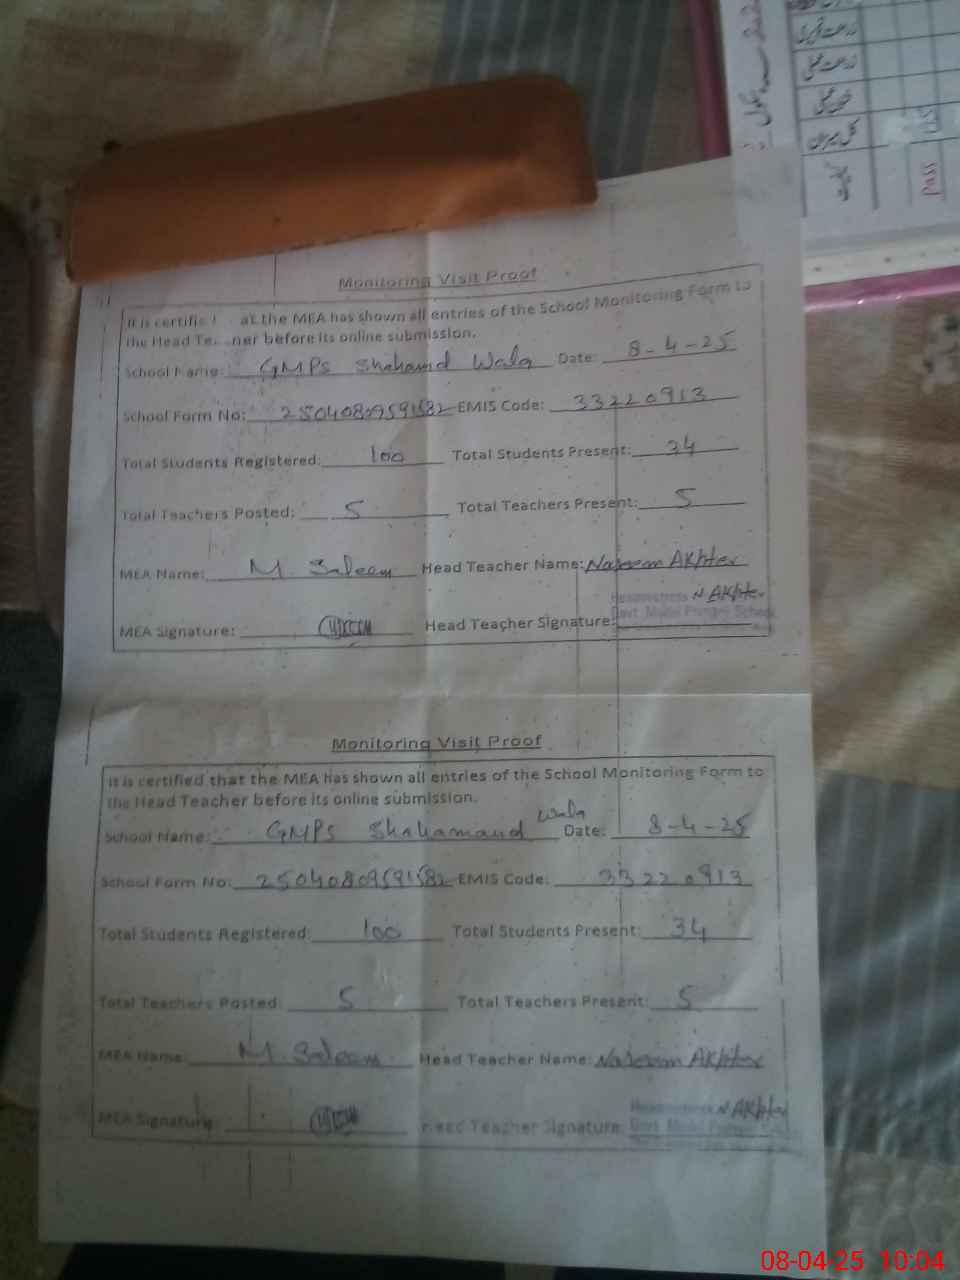 زراعت نظری
زراعت عملی
کل میزان
کیفیت
Pass
Monitoring Visit Proof
It is certifie at the MEA has shown all entries of the School Monitoring Form to
the Head Te ner before its online submission.
School Name: GMPS Shahamd Wala Date: 8-4-25
School Form No: 25040809591582 EMIS Code: 33220913
Total Students Registered: 100 Total Students Present: 34
Total Teachers Posted: 5 Total Teachers Present: 5
MEA Name: M. Saleem Head Teacher Name: Naseem Akhter
Headmistress N Akhter
MEA Signature: Head Teacher Signature: Govt. Model Primary School
Monitoring Visit Proof
It is certified that the MEA has shown all entries of the School Monitoring Form to
the Head Teacher before its online submission.
School Name: GMPS Shahamand Wala Date: 8-4-25
School Form No: 25040809591582 EMIS Code: 33220913
Total Students Registered: 100 Total Students Present: 34
Total Teachers Posted: 5 Total Teachers Present: 5
MEA Name: M Saleem Head Teacher Name: Naseem Akhter
Headmistress N Akhter
MEA Signature: Head Teacher Signature: Govt. Model Primary
08-04-25 10:04